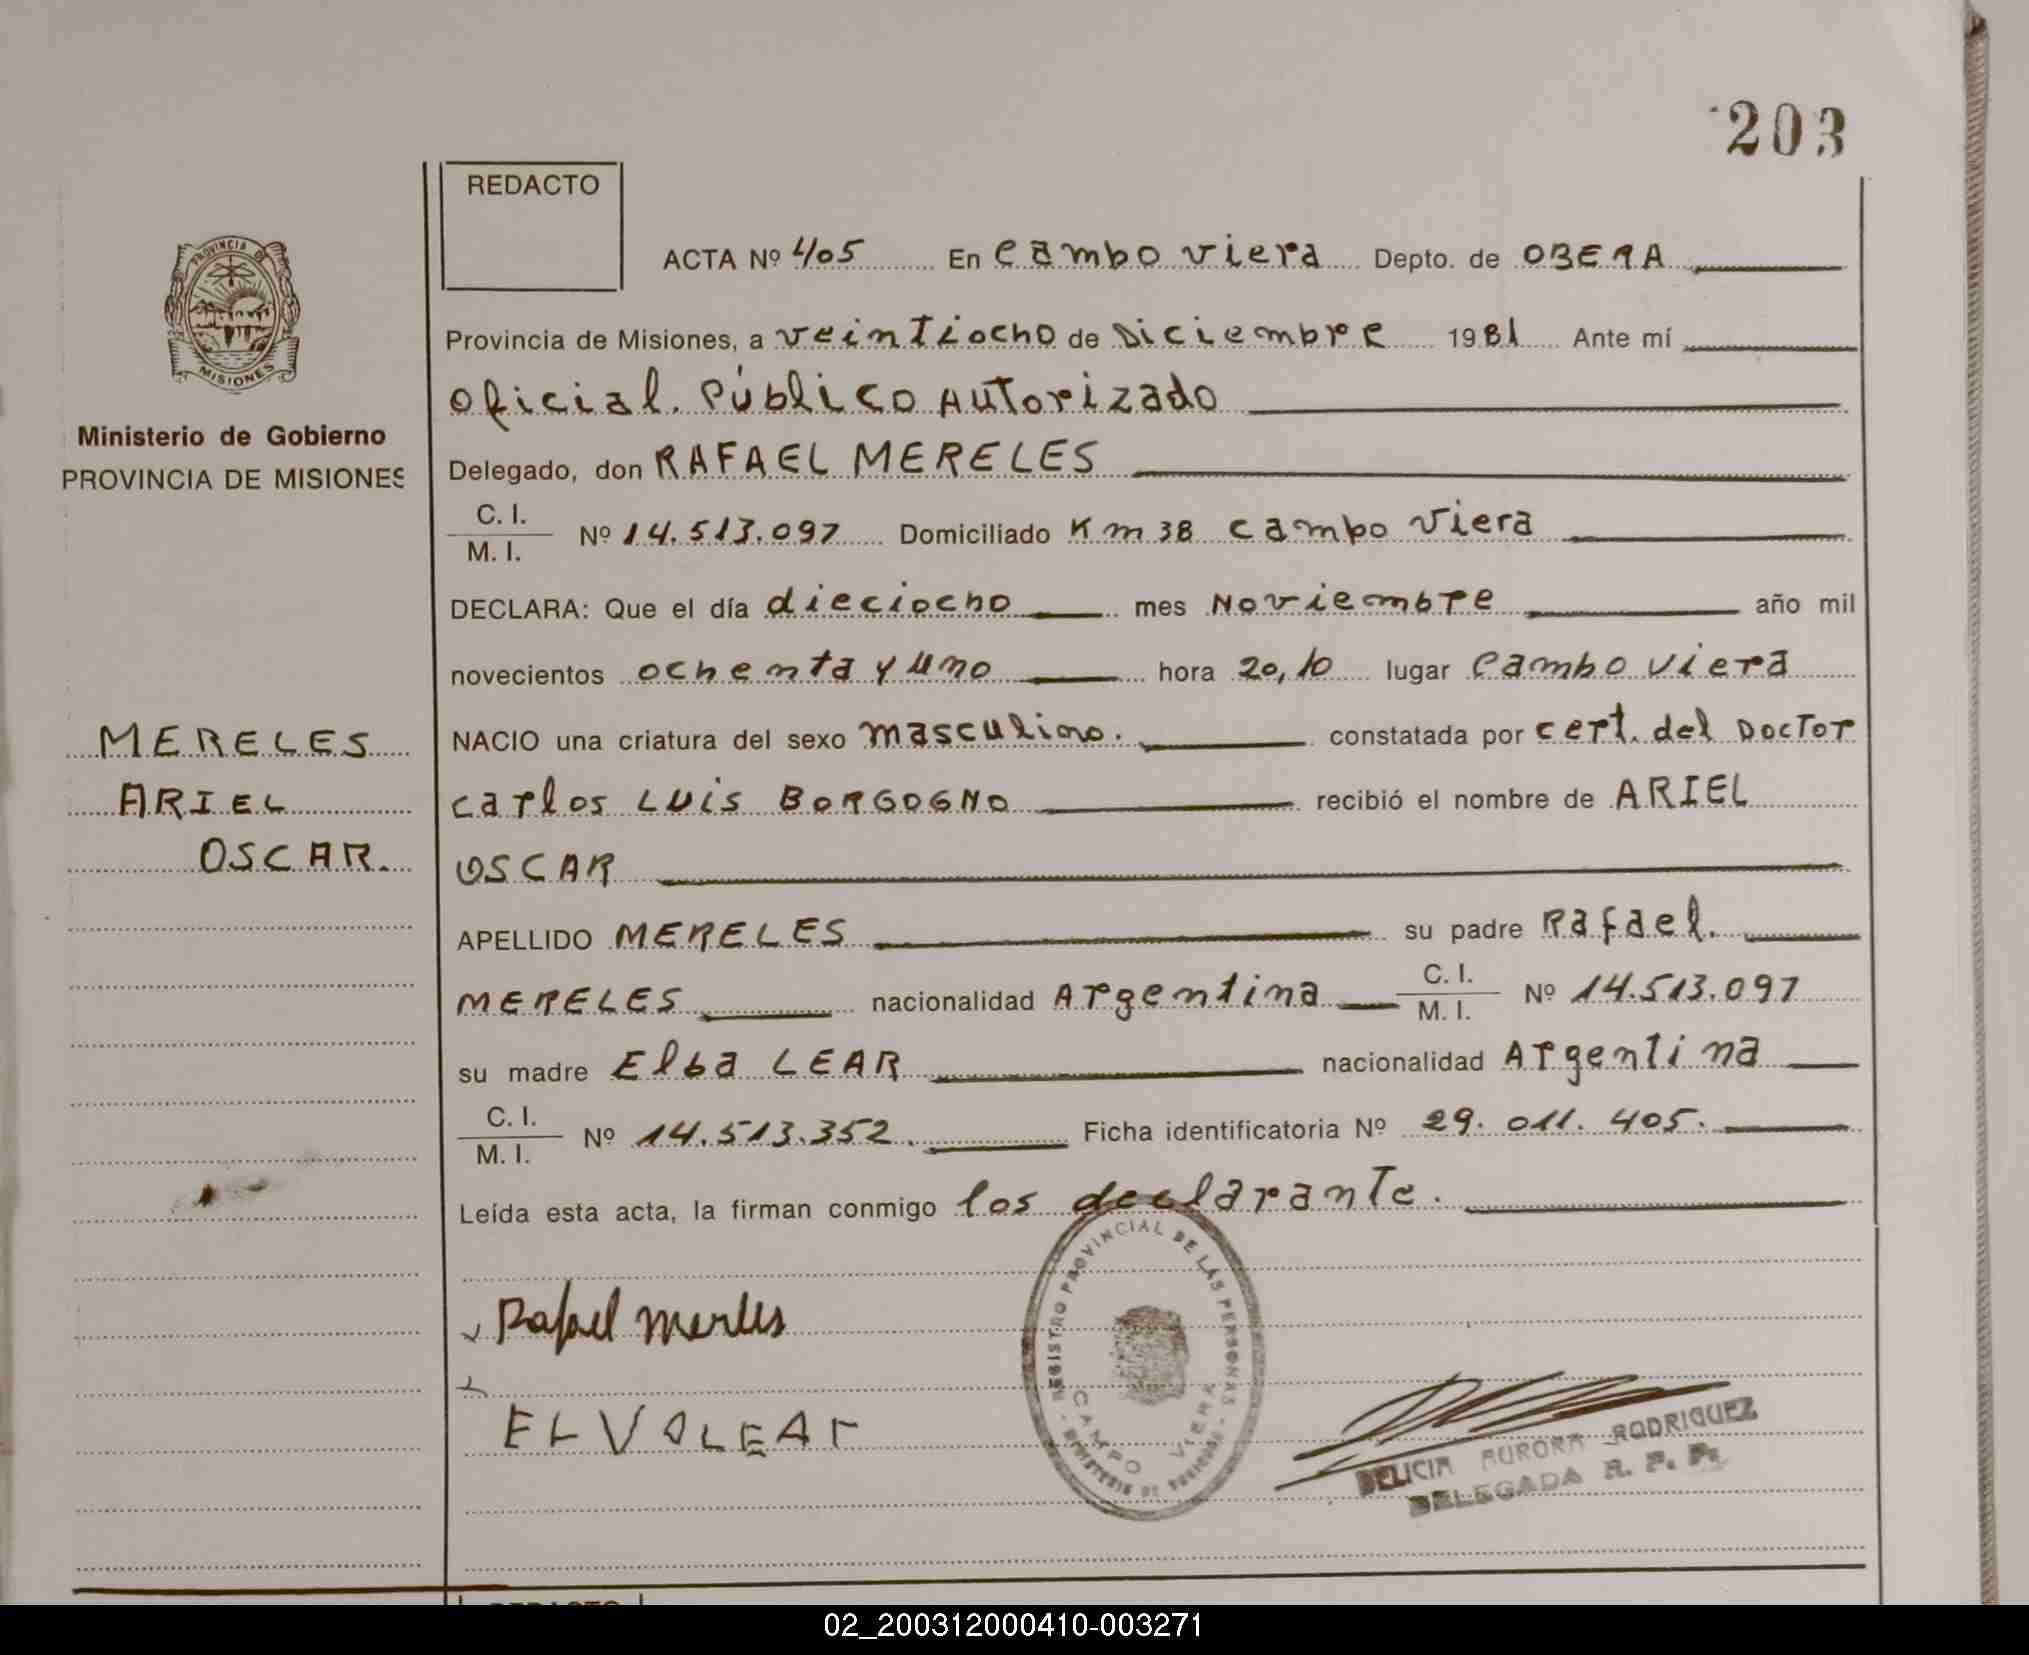 203
REDACTO
ACTA Nº 405 En Cambo viera Depto. de OBERA
Provincia de Misiones, a veintiocho de Diciembre 1981 Ante mí
oficial. Público Autorizado
Delegado, don RAFAEL MERELES
C. I.
M. I. Nº 14.513.097 Domiciliado Km 38 cambo viera
DECLARA: Que el día dieciocho mes Noviembre año mil
novecientos ochenta y uno hora 20,10 lugar Cambo viera
NACIO una criatura del sexo masculino. constatada por cert. del Doctor
Carlos LUis BORGOGNO recibió el nombre de ARIEL
OSCAR
APELLIDO MERELES su padre Rafael.
MERELES nacionalidad Argentina C. I. M. I. Nº 14.513.097
su madre Elba LEAR nacionalidad Argentina
C. I.
M. I. Nº 14.513.352. Ficha identificatoria Nº 29. 011. 405.
Leída esta acta, la firman conmigo los declarante.
Rafael Merles
ELVALEAr
REGISTRO PROVINCIAL DE LAS PERSONAS
CAMPO VIERA
DELICIA AURORA RODRIGUEZ
DELEGADA R. P. P.
PROVINCIA DE
MISIONES
Ministerio de Gobierno
PROVINCIA DE MISIONES
MERELES
ARIEL
OSCAR.
REDACTO
02_200312000410-003271